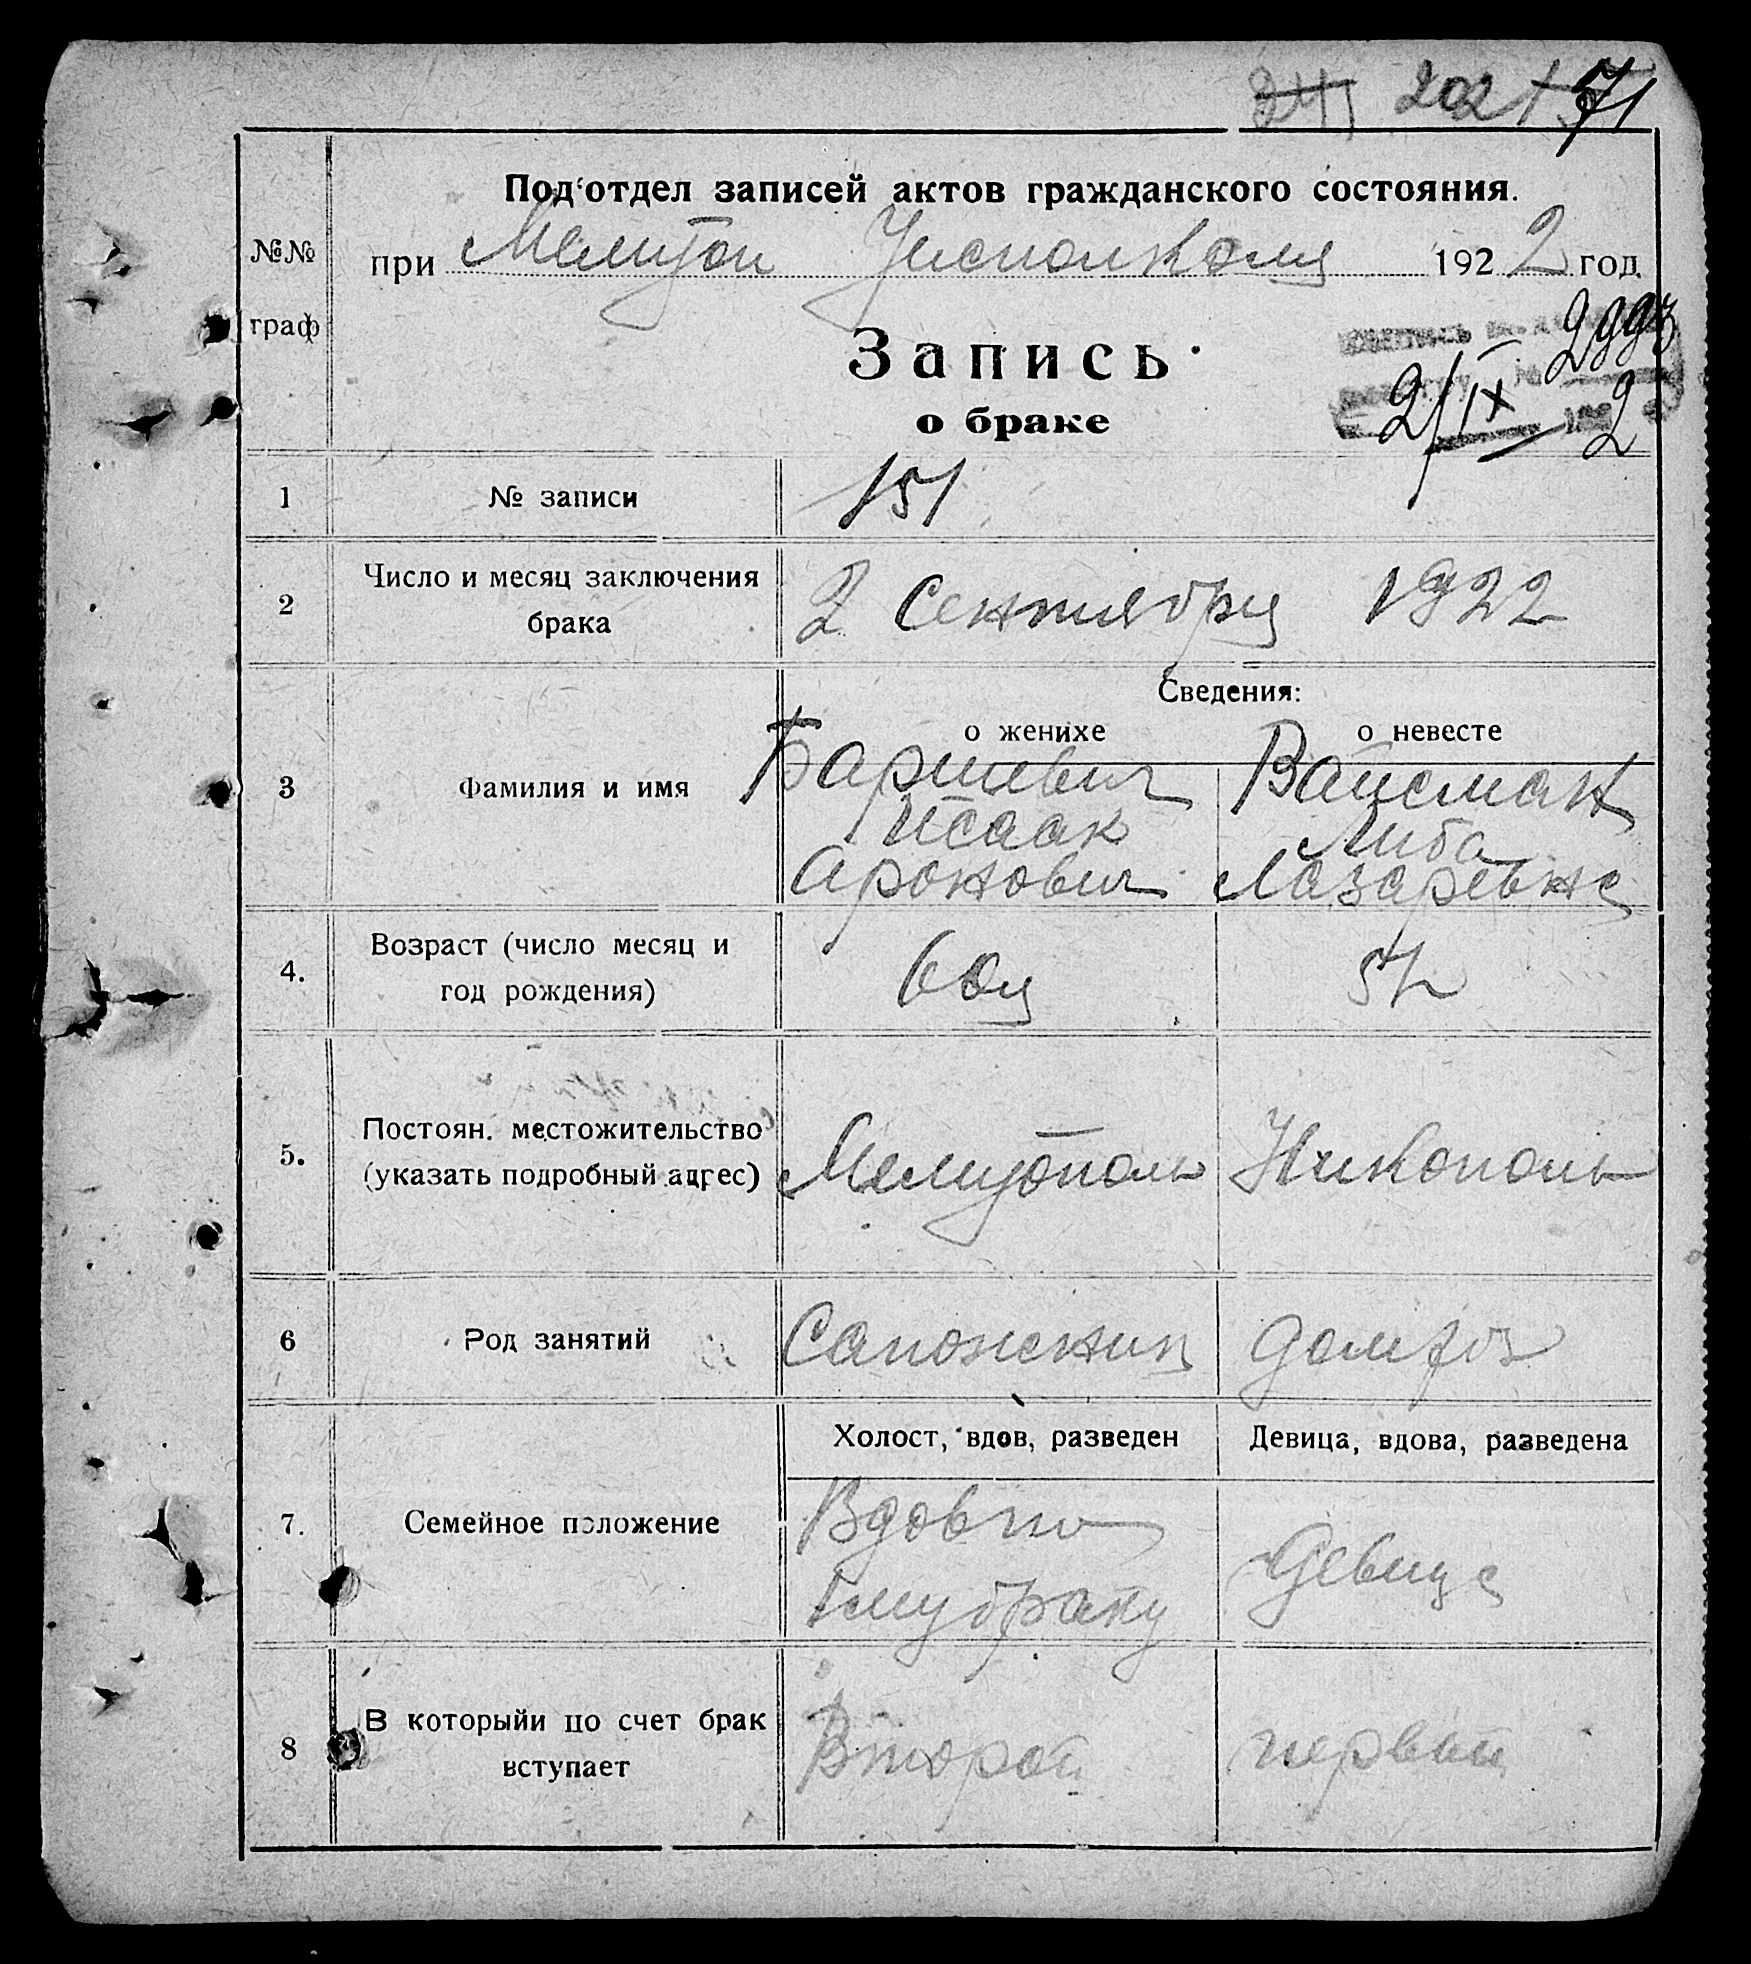 202 71
Под отдел записей актов гражданского состояния.
№№ при Мелитоп Уисполкома 1922 год.
граф
Запись
о браке
2/IX 2
1 № записи 151
2 Число и месяц заключения брака 2 Сентября 1922
Сведения:
о женихе о невесте
3 Фамилия и имя Баршевич Вайсман
Исаак Либа
Аронович Лазаревна
4. Возраст (число месяц и
год рождения)
5. Постоян. местожительство
(указать подробный адрес) Мелитополь Никополь
6 Род занятий Сапожник
Холост, вдов, разведен Девица, вдова, разведена
7. Семейное положение Девица
браку
8 В которыйи по счет брак
вступает Второй первый